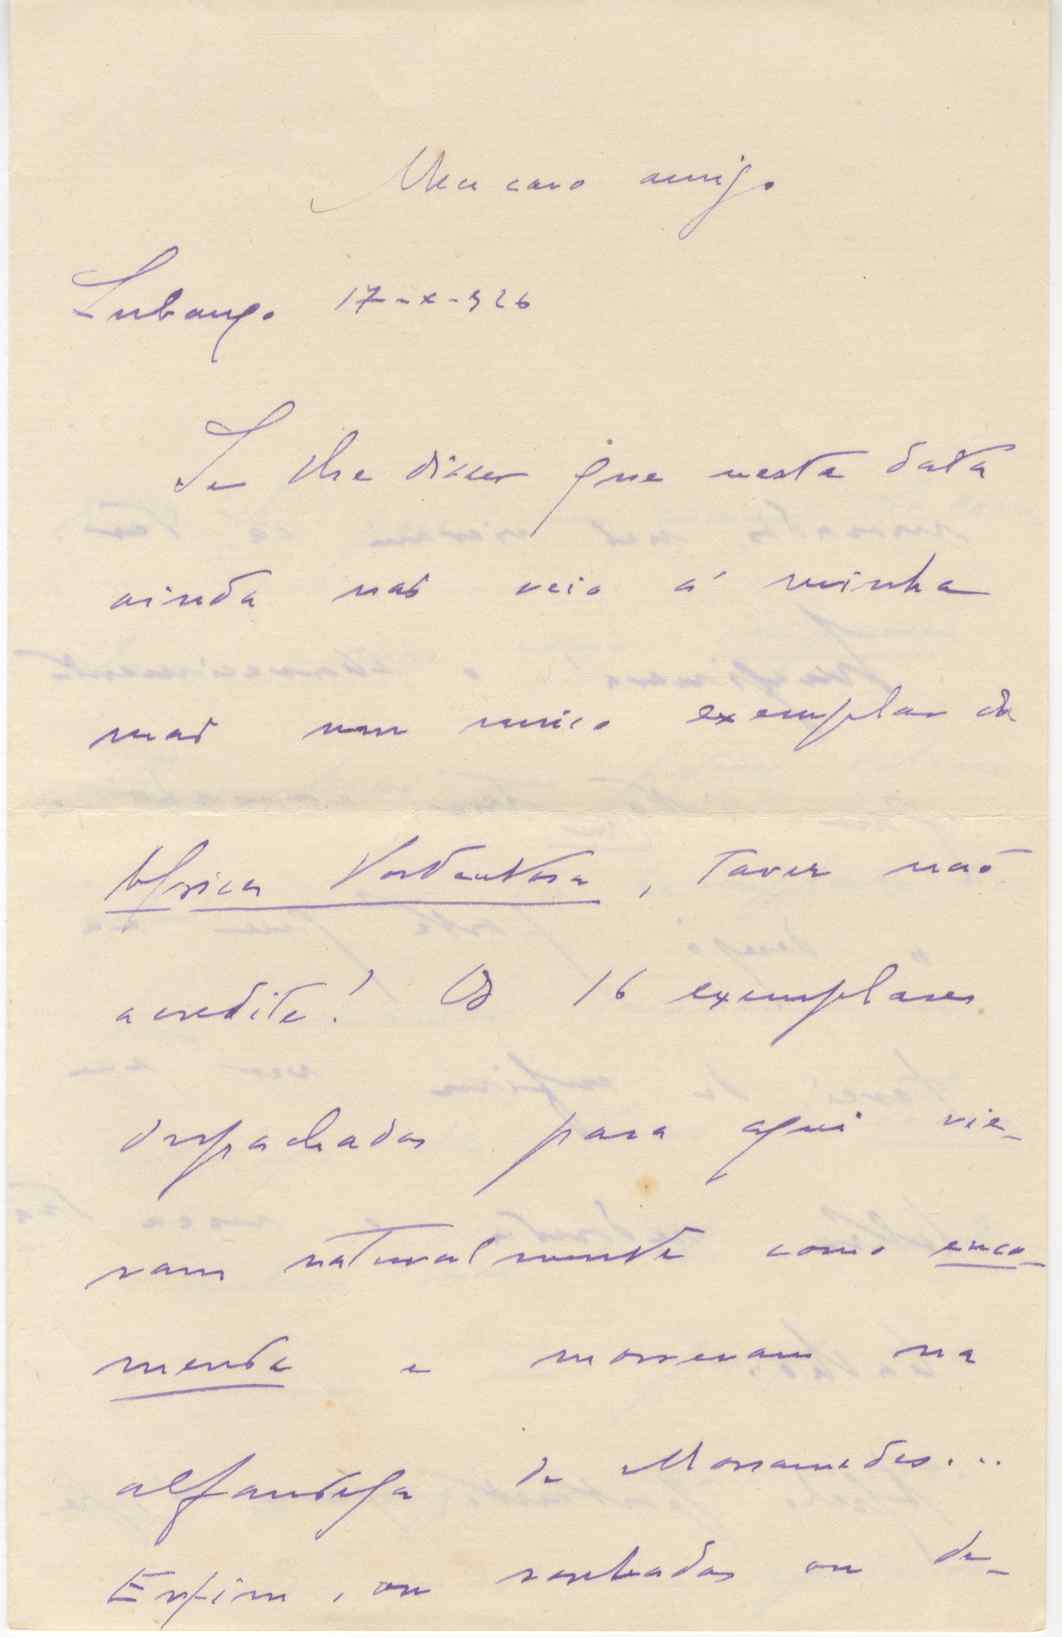 Meu caro amigo
Lubango 17-X-926
Se lhe disser que nesta data
ainda não veio á minha
mão um unico exemplar da
Africa Portentosa, talvez não
acredite! Os 16 exemplares
despachados para aqui vie-
ram naturalmente como enco-
menda e morreram na
alfandega de Mossamedes...
Enfim, ou roubados ou de-